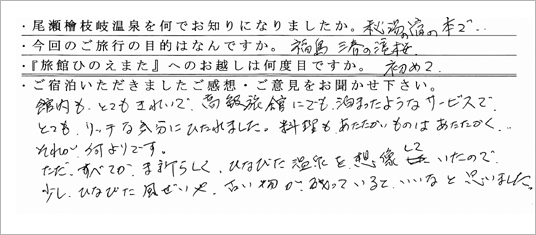 ・尾瀬檜枝岐温泉を何でお知りになりましたか。秘湯の宿の本で..
・今回のご旅行の目的はなんですか。福島 三春の滝桜
・『旅館ひのえまた』へのお越しは何度目ですか。初めて
・ご宿泊いただきましたご感想・ご意見をお聞かせ下さい。
館内も、とてもきれいで、高級旅館にでも泊まったようなサービスで、
とても、リッチな気分にひたれました。料理もあたたかいものはあたたかく、..
それが、何よりです。
ただ、すべてが、ま新らしく、ひなびた温泉を想像していたので、
少し、ひなびた風ぜいや、古い物が、残っていると、いいなと思いました。